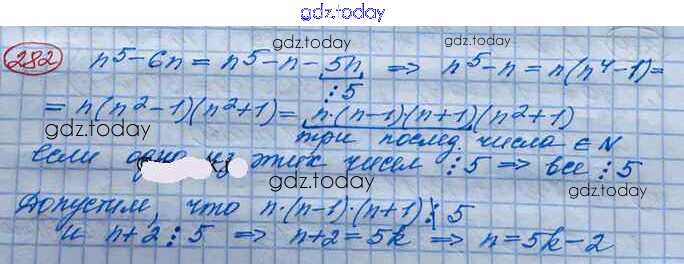 gdz.today
282 n⁵-6n = n⁵-n-5n ⇒ n⁵-n = n(n⁴-1)=
gdz.today
gdz.today
⋮5
= n(n²-1)(n²+1) = n·(n-1)·(n+1)(n²+1)
gdz.today
три послед. числа ∈ N
gdz.today
если из этих чисел ⋮5 ⇒ все ⋮5
gdz.today
gdz.today
Допустим, что n·(n-1)·(n+1) ⋮ 5
и n+2⋮5 ⇒ n+2=5k ⇒ n=5k-2
gdz.today